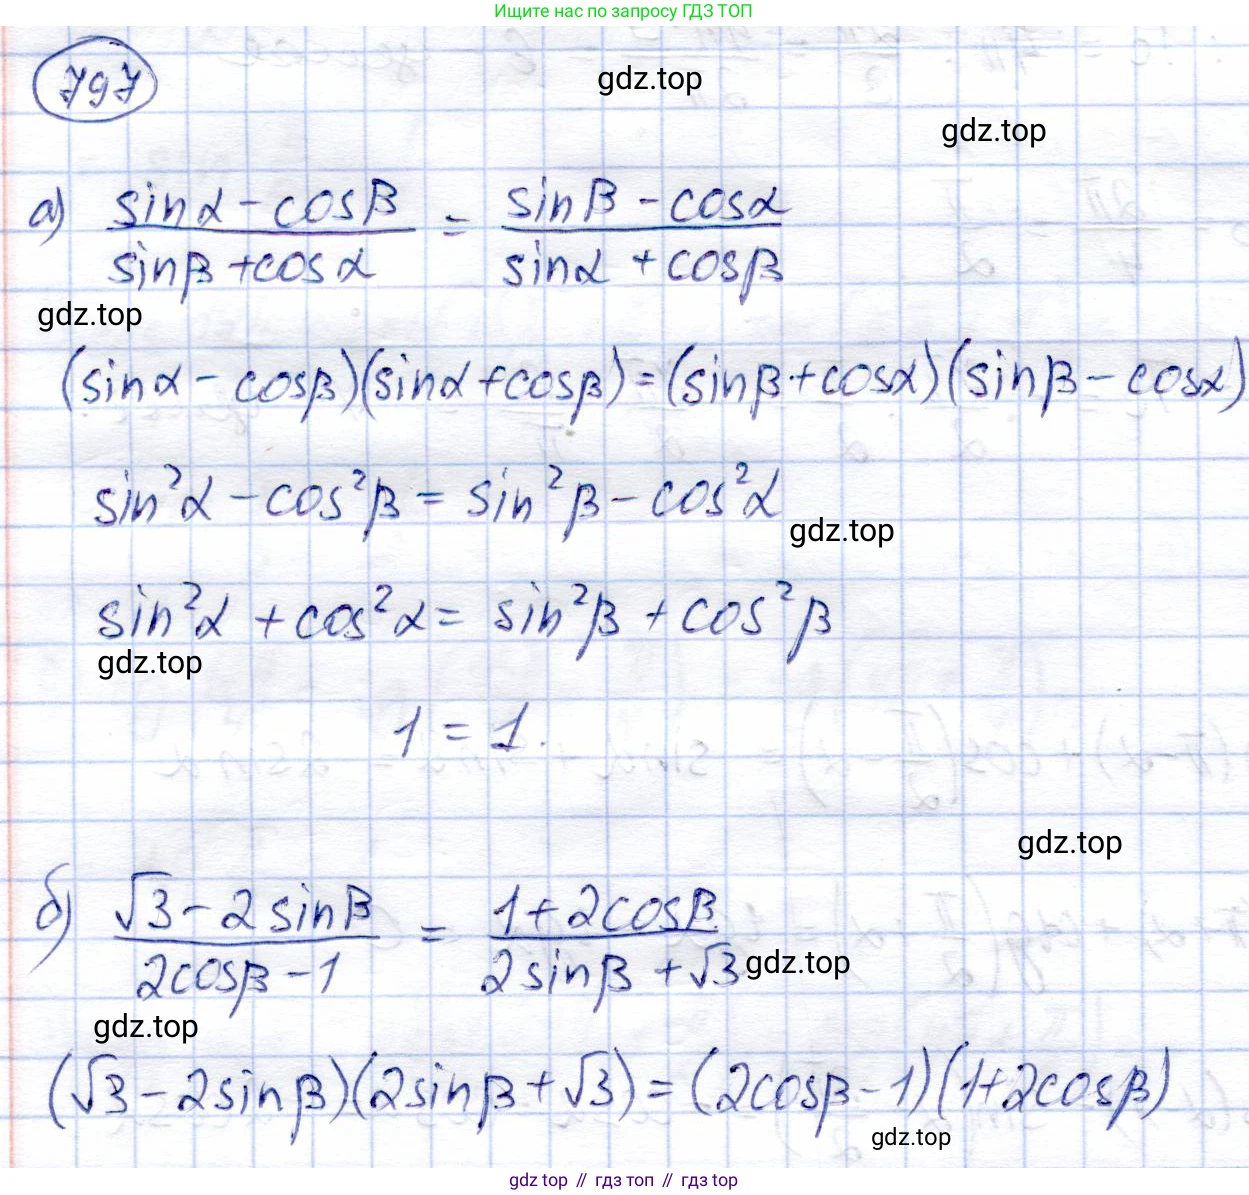 Ищите нас по запросу ГДЗ ТОП
797
gdz.top
gdz.top
а) (sinα - cosβ)/(sinβ + cosα) = (sinβ - cosα)/(sinα + cosβ)
gdz.top
(sinα - cosβ)(sinα + cosβ) = (sinβ + cosα)(sinβ - cosα)
sin²α - cos²β = sin²β - cos²α
gdz.top
sin²α + cos²α = sin²β + cos²β
gdz.top
1 = 1.
gdz.top
б) (√3 - 2sinβ)/(2cosβ - 1) = (1 + 2cosβ)/(2sinβ + √3)
gdz.top
gdz.top
(√3 - 2sinβ)(2sinβ + √3) = (2cosβ - 1)(1 + 2cosβ)
gdz.top
gdz top // гдз топ // гдз top